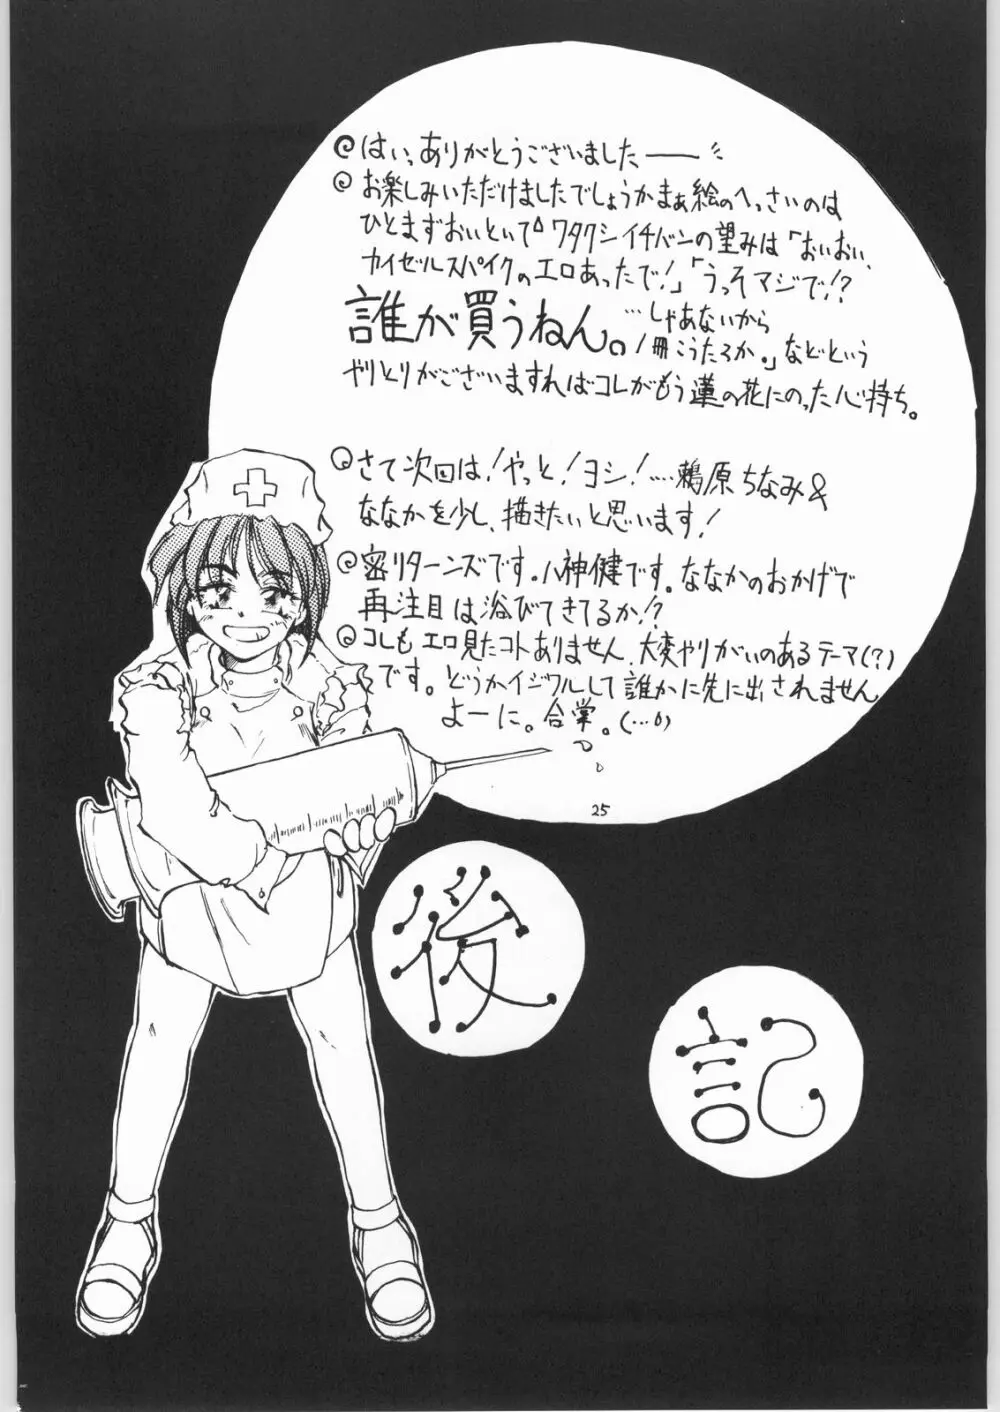 はいっありがとうございましたーー
お楽しみいただけましたでしょうかまぁ絵のへっさいのは
ひとまずおいといて ワタクシイチバンの望みは「おいおい、
カイゼルスパイクのエロあったで!」「うっそマジで!?
誰が買うねん。…しゃあないから
1冊こうたろか。」などという
やりとりがございますればコレがもう蓮の花にのった心持ち。
さて次回は!やっと!ヨシ!…鵜原ちなみ&
ななかを少し、描きたいと思います!
密リターンズです。八神健です。ななかのおかげで
再注目は浴びてきてるか!?
コレもエロ見たコトありません、大変やりがいのあるテーマ(?)
です。どうかイジワルして誰かに先に出されません
よーに。合掌。(…o)
25
後
記